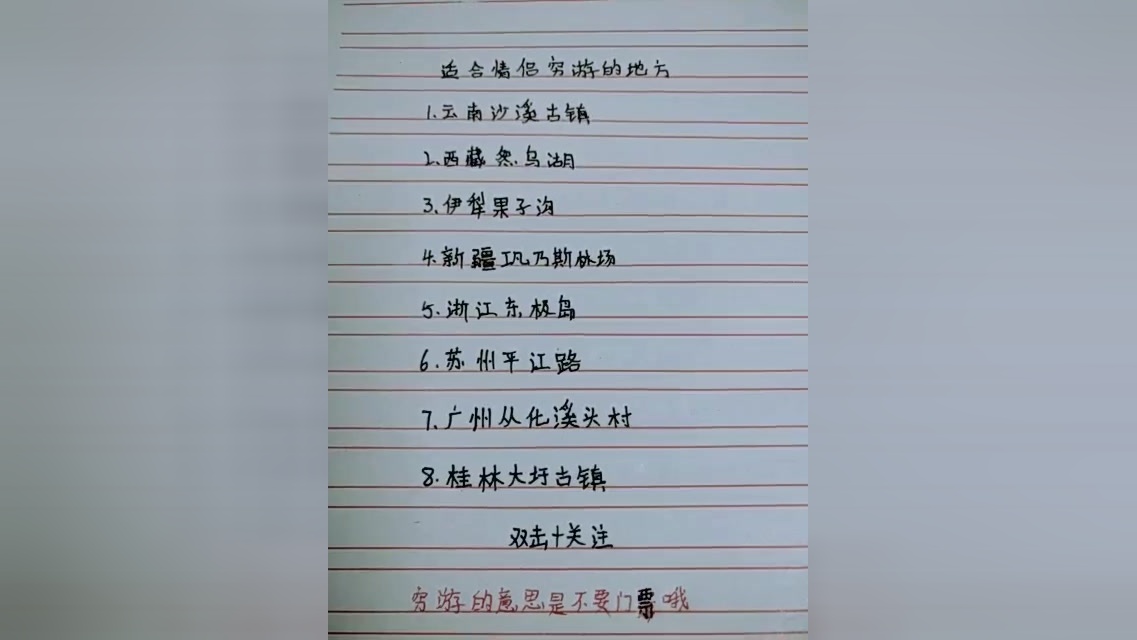 适合情侣穷游的地方
1.云南沙溪古镇
2.西藏然乌湖
3.伊犁果子沟
4.新疆巩乃斯林场
5.浙江东极岛
6.苏州平江路
7.广州从化溪头村
8.桂林大圩古镇
双击+关注
穷游的意思是不要门票哦